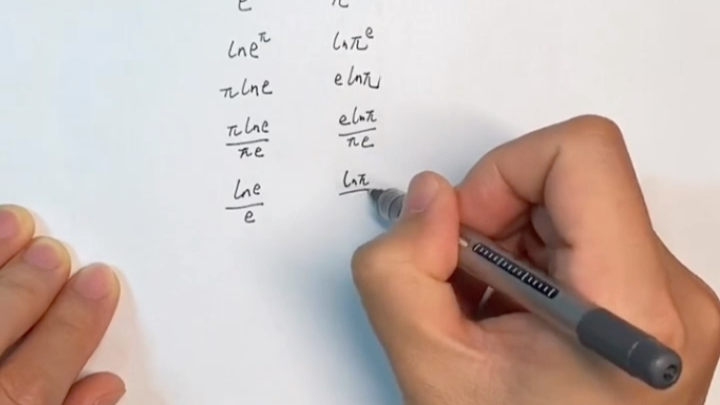 e π
ln e^π ln π^e
π ln e e ln π
π ln e / π e e ln π / π e
ln e / e ln π